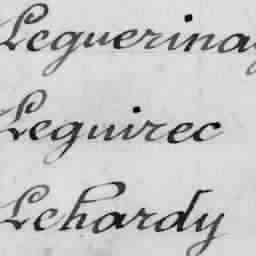 Leguerinay
Leguirec
Lehardy